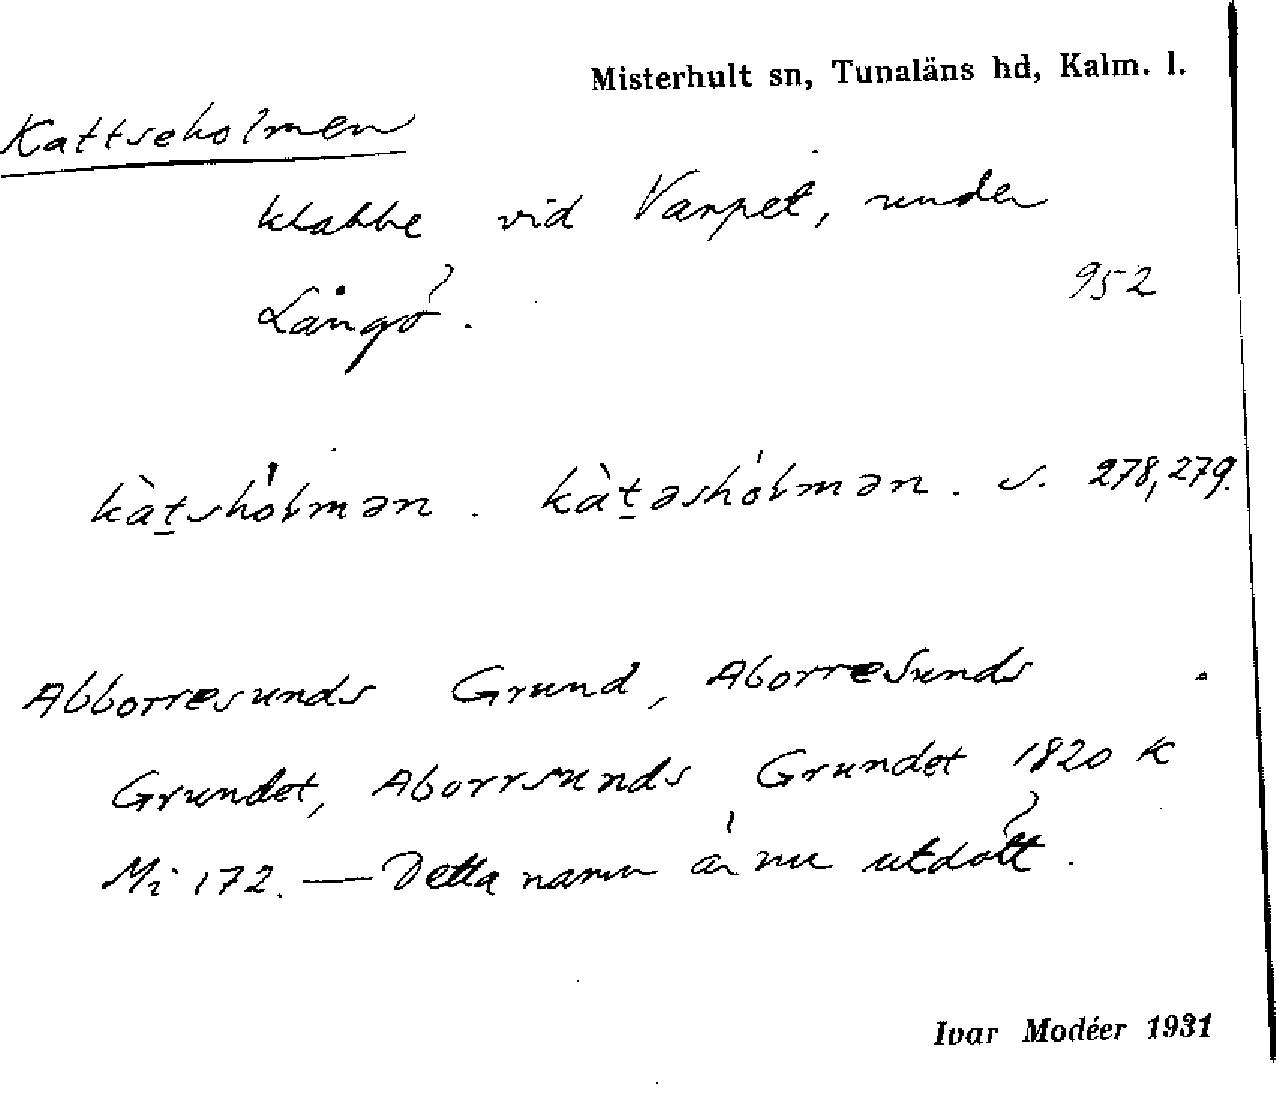 Misterhult sn, Tunaläns hd, Kalm. l.
Kattseholmen
klabbe vid Varpet, under
Långö.
952
kàt̲shólmən. kàt̲əshólmən. s. 278, 279.
Abborresunds Grund, Aborresunds
Grundet, Aborrsunds Grundet 1820 k
Mi 172. — Detta namn är nu utdött.
Ivar Modéer 1931